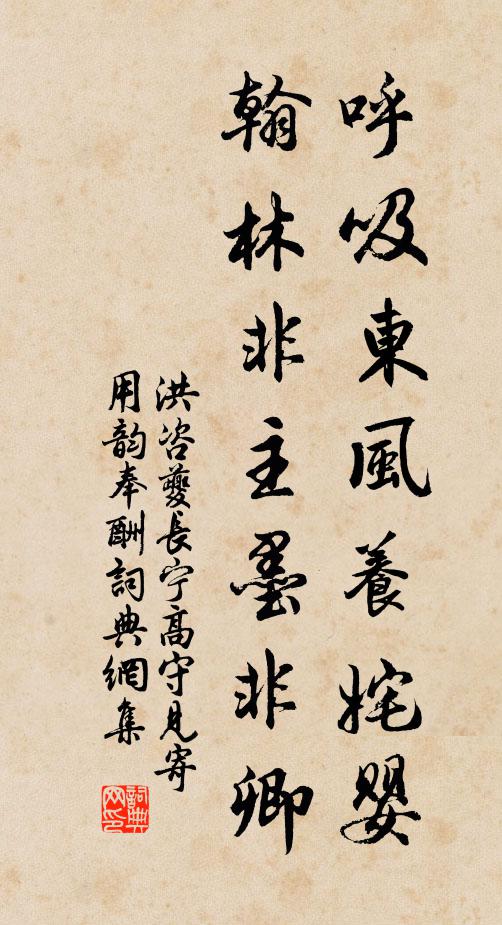 呼吸東風養姹嬰
翰林非主墨非卿
洪咨夔長宁高守見寄
用韵奉酬詞典網集
詞典网印